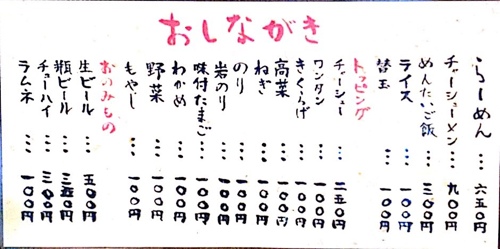 おしながき
らーめん … 六五〇円
チャーシューメン … 九〇〇円
めんたいご飯 … 三〇〇円
ライス … 一〇〇円
替玉 … 一〇〇円
トッピング
チャーシュー … 二五〇円
ワンタン … 一〇〇円
きくらげ … 一〇〇円
高菜 … 一〇〇円
ねぎ … 一〇〇円
のり … 一〇〇円
岩のり … 一〇〇円
味付たまご … 一〇〇円
わかめ … 一〇〇円
野菜 … 一〇〇円
もやし … 一〇〇円
おのみもの
生ビール … 五〇〇円
瓶ビール … 三五〇円
チューハイ … 三〇〇円
ラムネ … 一〇〇円